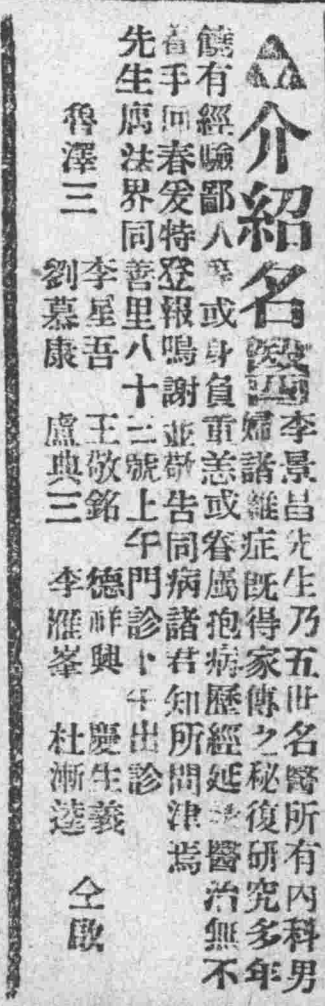 介紹名醫
李景昌先生乃五世名醫所有內科男
婦諸雜症既得家傳之秘復研究多年
饒有經驗鄙人等或身負重恙或眷屬抱病歷經延 醫治無不
着手回春爰特登報鳴謝並敬告同病諸君知所問津焉
先生寓法界同善里八十二號上午門診下午出診
李星吾 王敬銘 德祥興 慶生義
魯澤三
劉慕康 盧典三 李雁峯 杜漸逵 仝啟